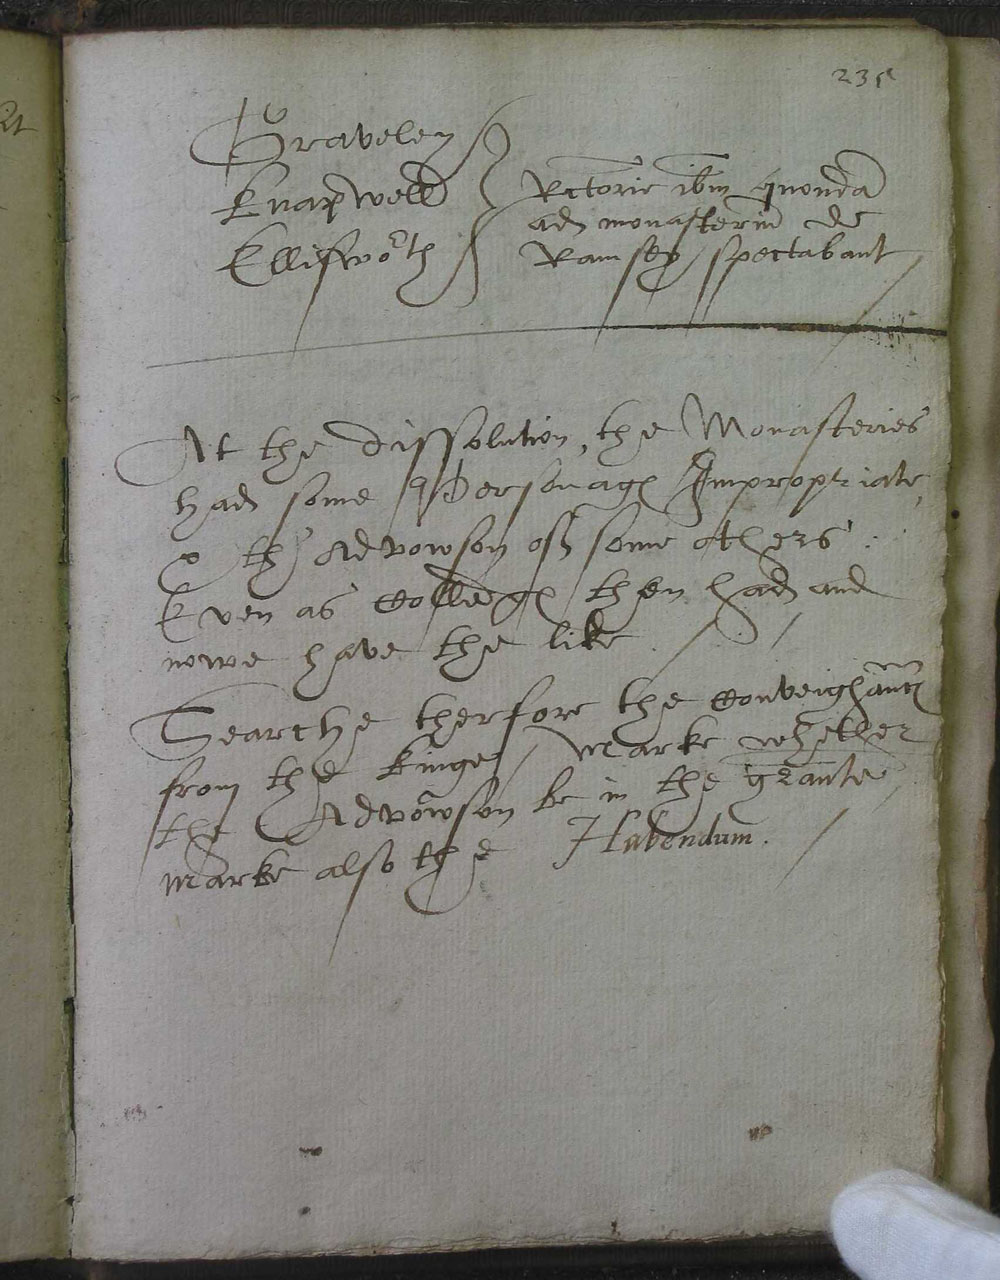 235
Graveley
Knapwell
Ellisworth
Rectorie ibm quondã
ad monasteriũ de
Ramsey spectabant
At the dissolution, the Monasteries
had some Personages Impropriate,
& the Advowson off some others:
Even as Colledges then had and
nowe have the like.
Searche therfore the Conveighãnces
from the Kinge / marke whether
the Advowson be in the grante /
marke also the Habendum.